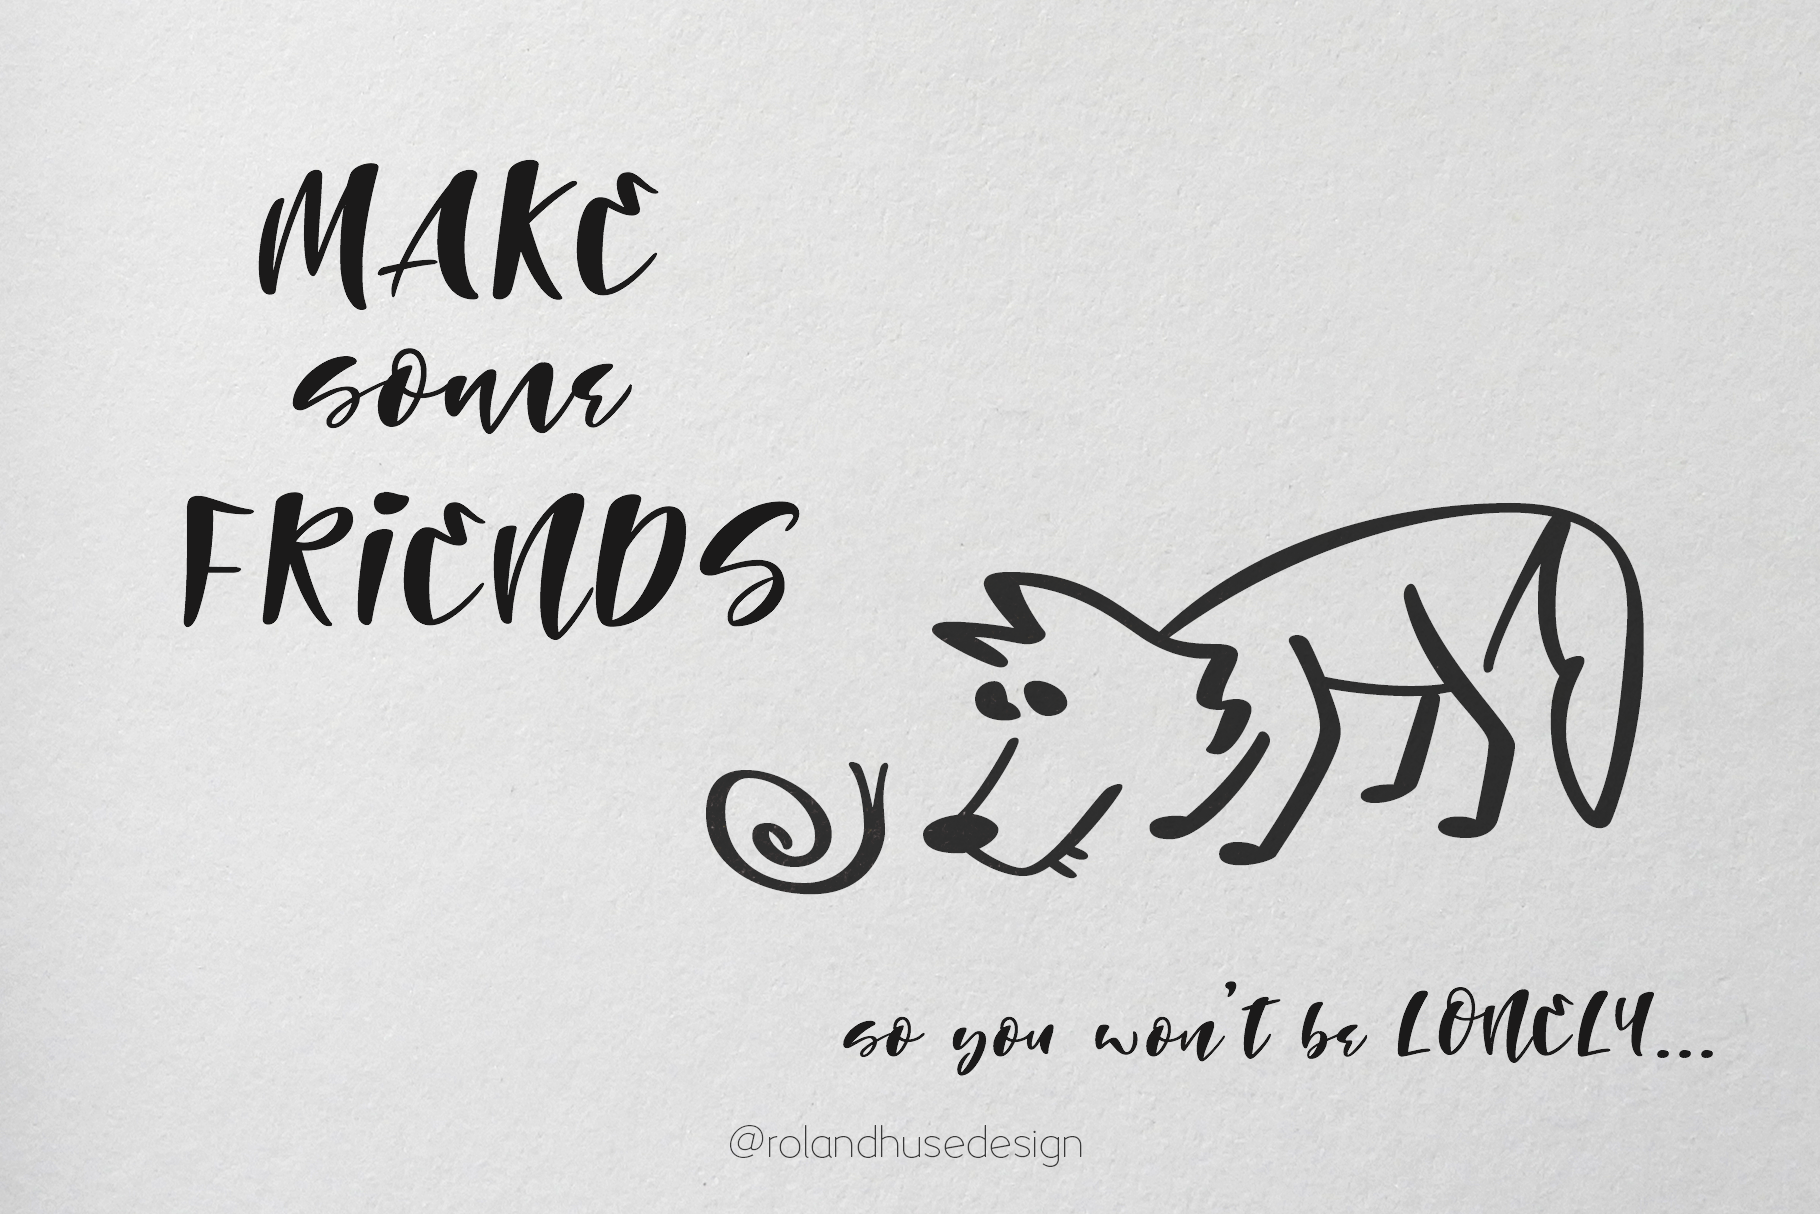 MAKE
some
FRiENDS
so you won't be LONELY...
@rolandhusedesign